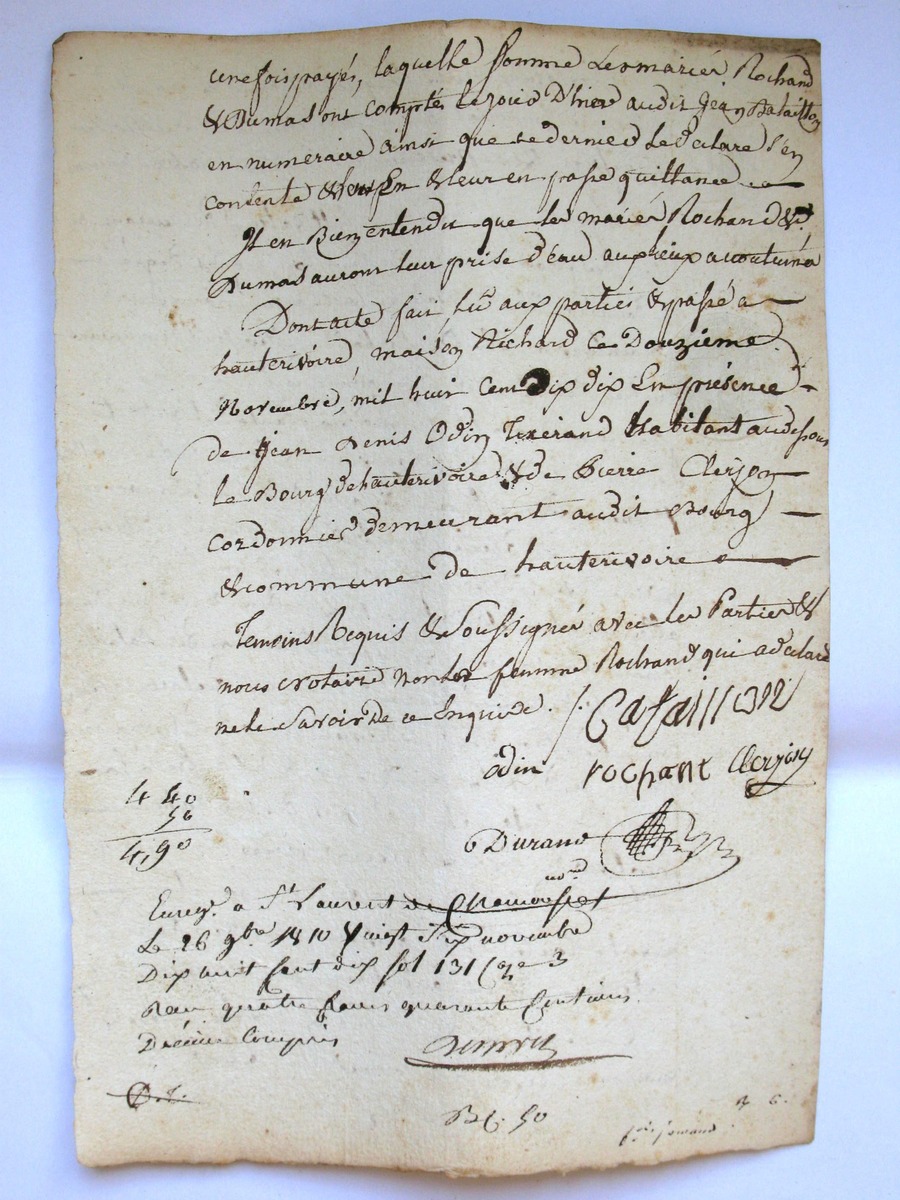 une fois payés, laquelle somme les mariés Rochand
& Dumas ont comptés le jour D'hier audit Jean Bataillon
en numeraire ainsi que ce dernier le declare s'en
contente & leur en passe quittance
Il en Bien entendu que les mariés Rochand &
Dumas auront leur prise d'eau aux lieux accoutumé
Dont acte fait lû aux parties & passé a
hauterivoire, maison Richard ce Douzieme
Novembre, mil huit Cent Dix En présence
de Jean Denis Odin Texerand habitant au dessous
le Bourg de hauterivoire & de Pierre Clerjon
Cordonnier demeurant audit Bourg
& commune de hauterivoire
Temoins Requis & Soussignés avec les Parties &
nous Notaire non la femme Rochand qui a declaré
ne le Savoir de ce Enquise.
Bataillon
odin rochant Clerjon
4 40
50
4,90
Durand
no.re
Enreg.é a St Laurent de Chamousset
Le 26 9bre 1810 Vingt Six novembre
Dix huit Cent dix fol 131 Case 3
Recu quatre francs quarante Centimes
Décime Compris
B C. 50